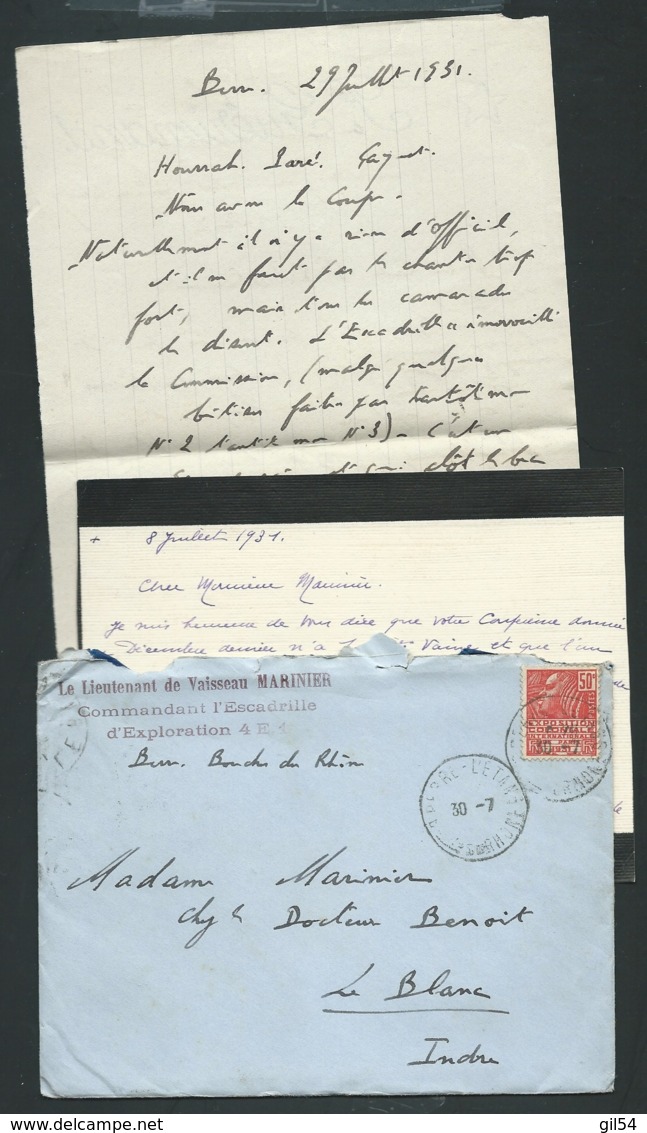 Berre. 29 Juillet 1931.
Hourrah. Gagné.
Nous avons la Coupe.
Naturellement il n'y a rien d'officiel,
et il ne faut pas le chanter trop
fort, mais tous les camarades
le disent. L'Escadrille a émerveillé
la Commission, (malgré quelques
bêtises faites par tantôt mon
N° 2 tantôt mon N° 3) - C'est un
+ 8 Juillet 1931.
Cher Monsieur Marinier.
Je suis heureuse de vous dire que votre Conférence donnée
Décembre dernier n'a vaine et que l'un
de
Le Lieutenant de Vaisseau MARINIER
Commandant l'Escadrille
d'Exploration 4 E 1
Berre. Bouches du Rhône
50c
POSTES
EXPOSITION
COLONIALE
INTERNATIONALE
BERRE-L'ETANG
30 -7
30 -7
Madame Marinier
chez le Docteur Benoit
Le Blanc
Indre
delcampe.net
gil54